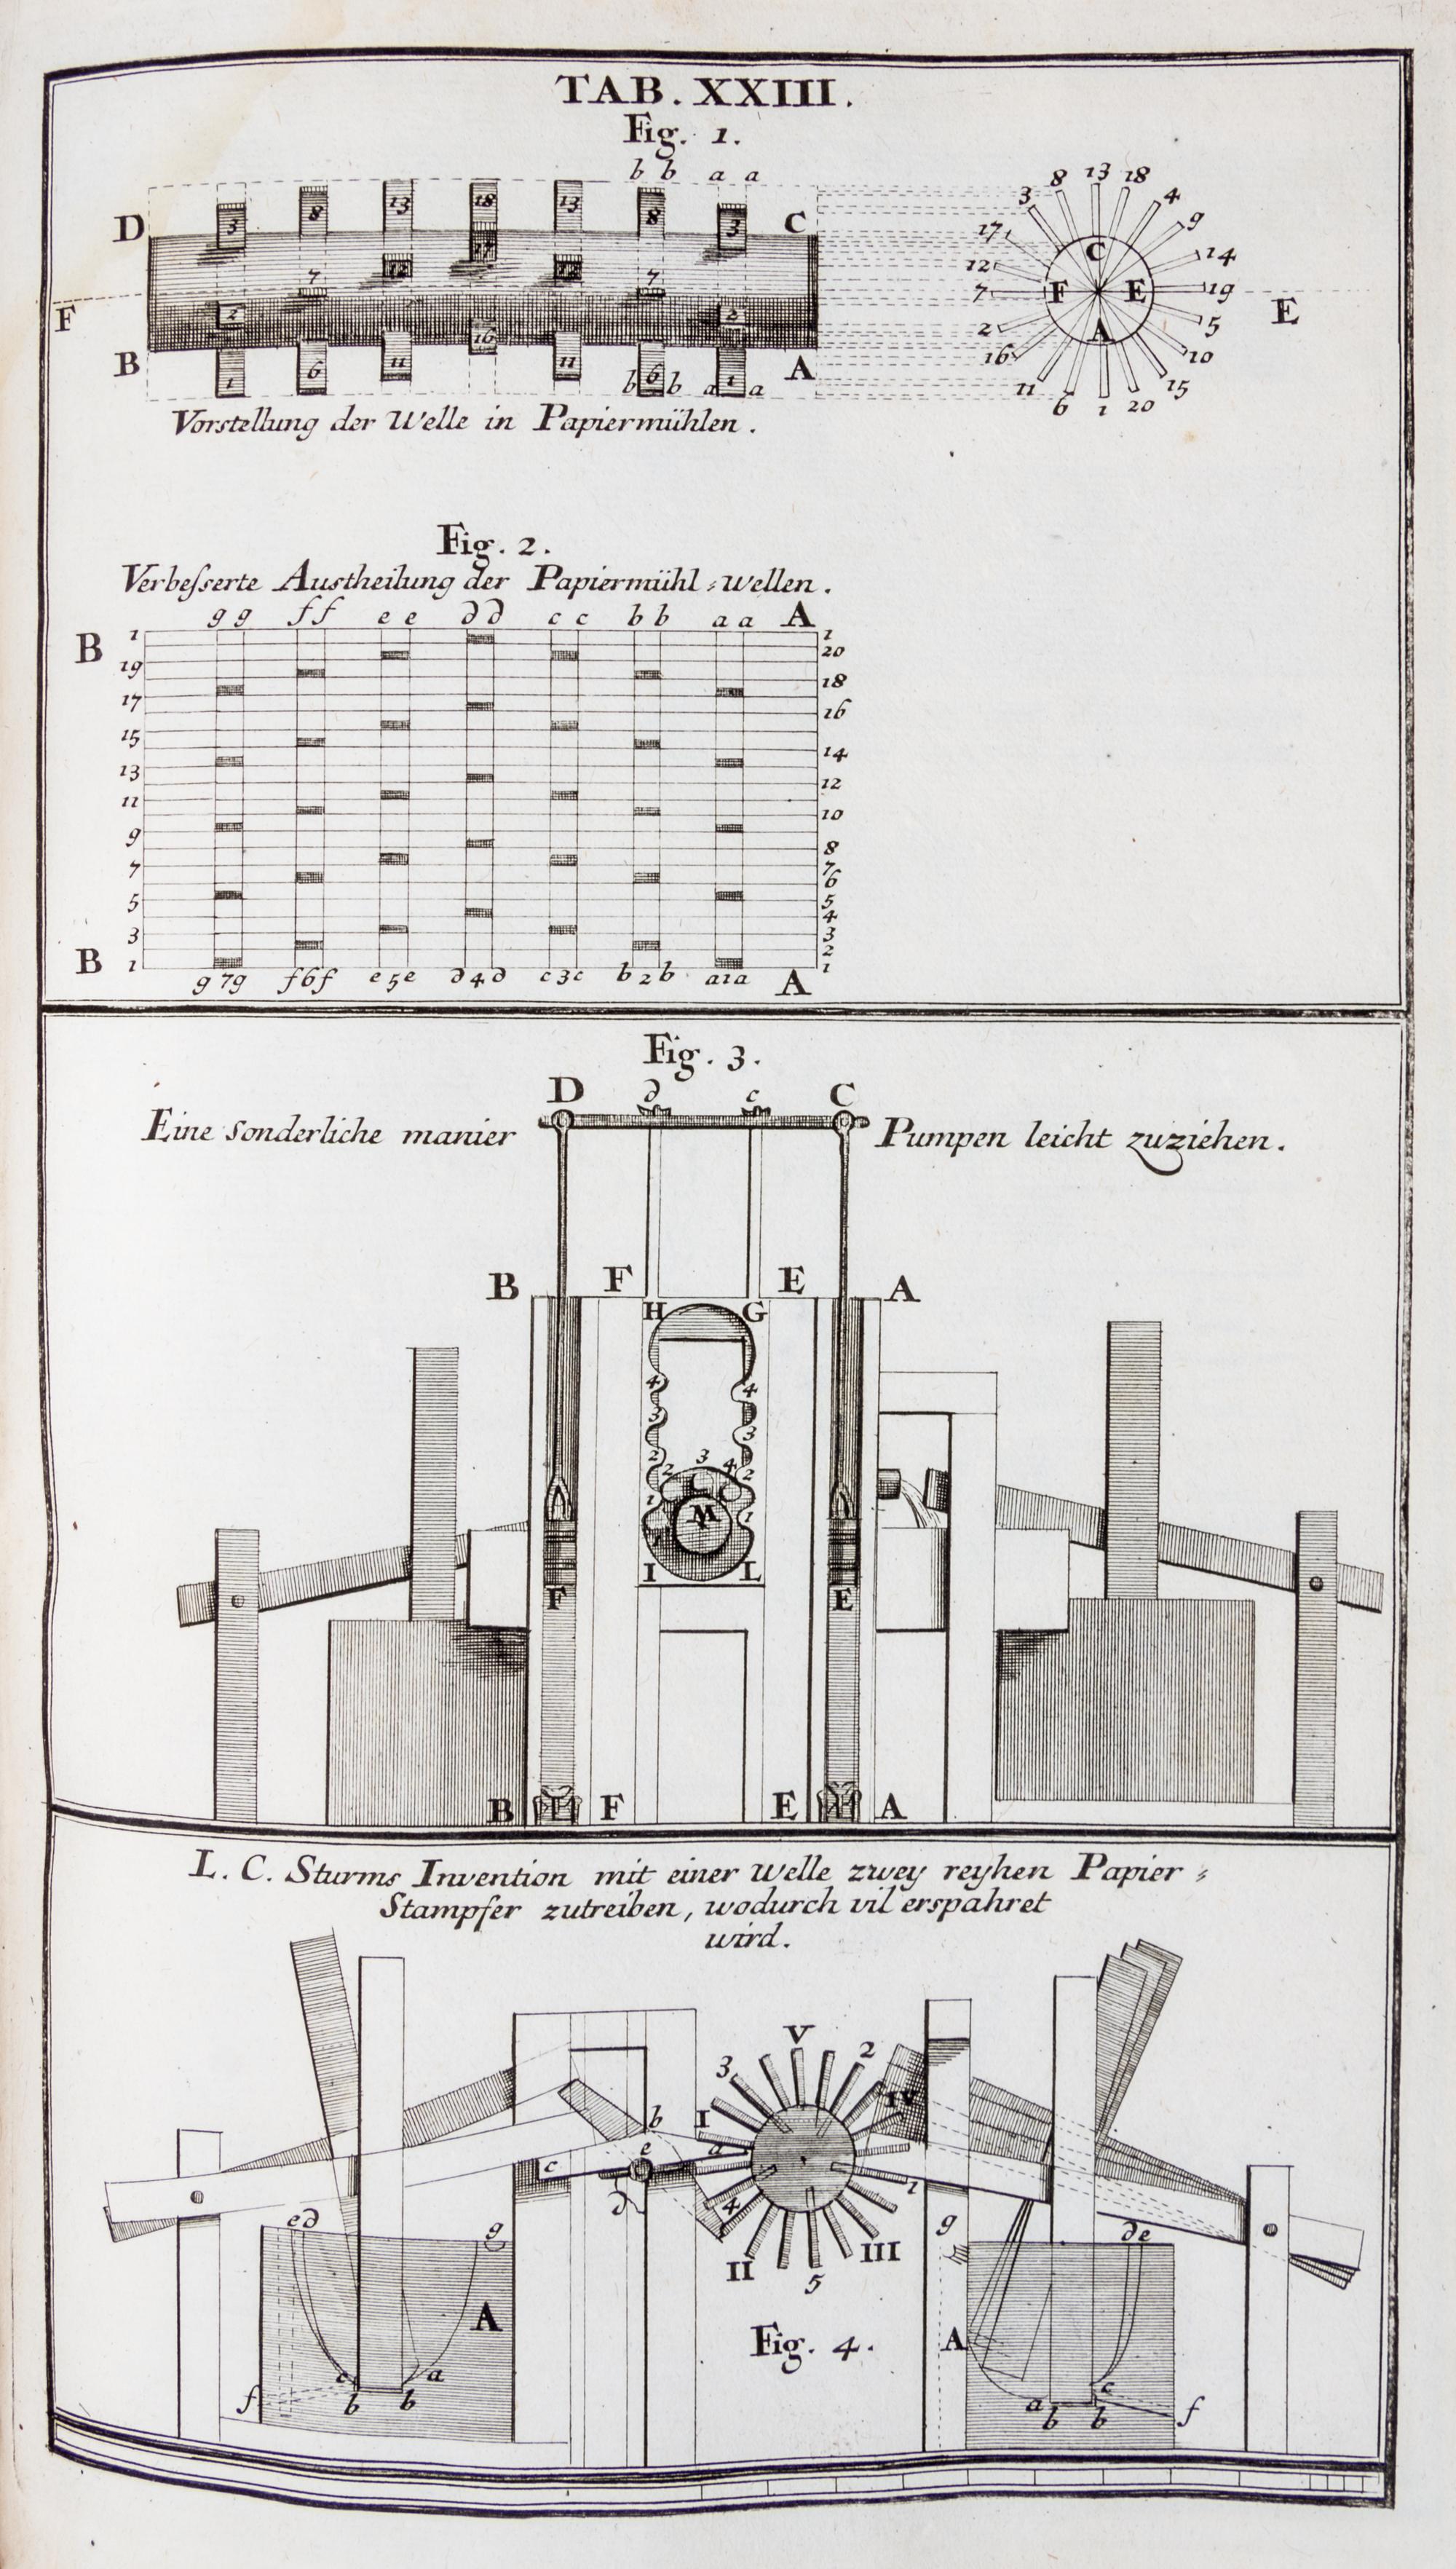 TAB. XXIII.
Fig. 1.
b b a a
D 3 8 13 18 13 8 3 C
17
7 12 12 7
F
2 16 2
B 1 6 11 11 b 6 b a 1 a A
3 8 13 18 4 9 14 19 5 10 15 20 1 6 11 16 2 7 12 17
C F E A
E
Vorstellung der Welle in Papiermühlen.
Fig. 2.
Verbesserte Austheilung der Papiermühl-wellen.
g g f f e e d d c c b b a a A
B 1 1
20
19
18
17
16
15
14
13
12
11
10
9
8
7 7
6
5 5
4
3 3
2
B 1 1
g 7 g f 6 f e 5 e d 4 d c 3 c b 2 b a 1 a A
Fig. 3.
D d c C
Eine sonderliche manier Pumpen leicht zuziehen.
B F E A
H G
4 4
3 3
2 2 3 4 2
1 M 1
I L
F E
B F E A
L. C. Sturms Invention mit einer Welle zwey reyhen Papier-
Stampfer zutreiben, wodurch vil erspahret
wird.
V
3 2
I IV
b
e a
c
d 4 1
II 5 III
e d g
A
c a
f b b
g d e
A
a c
b b f
Fig. 4.